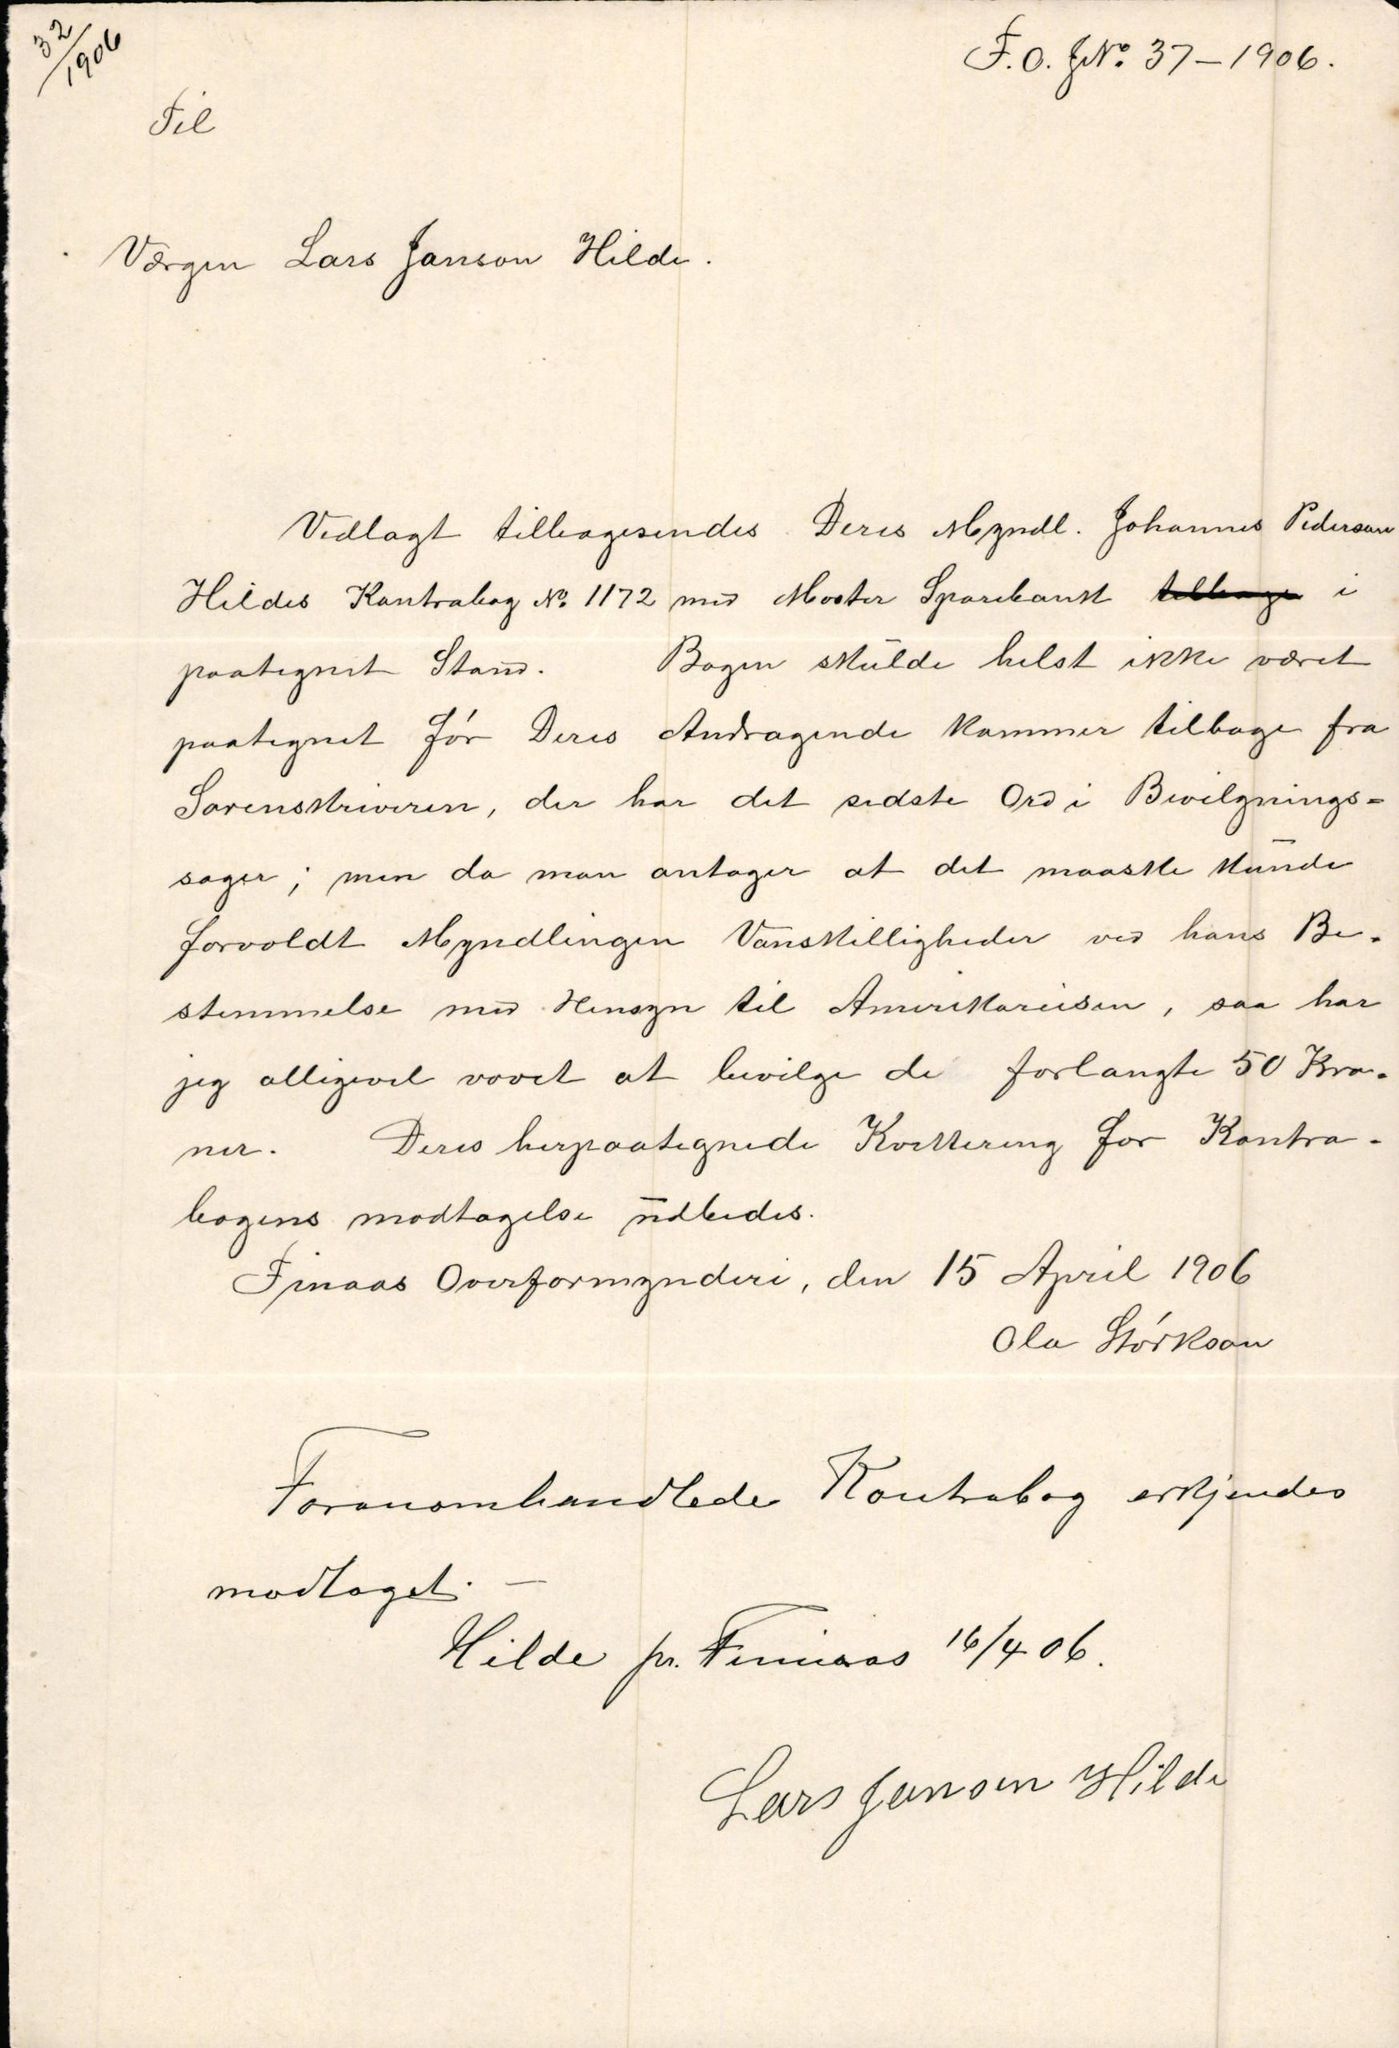 32/1906
F. O. JNo. 37 – 1906.
Til
Værgen Lars Janson Hilde.
Vedlagt tilbagesendes Deres Myndl. Johannes Pederson
Hildes Kontrabog No. 1172 med Moster Sparebank tilbage i
paategnet Stand. Bogen skulde helst ikke været
paategnet før Deres Andragende kommer tilbage fra
Sorenskriveren, der har det sidste Ord i Bevilgnings=
sager; men da man antager at det maaske kunde
forvoldt Myndlingen Vanskilligheder ved hans Be-
stemmelse med Hensyn til Amerikareisen, saa har
jeg alligevel vovet at bevilge de forlangte 50 Kro-
ner. Deres herpaategnede Kvittering for Kontra-
bogens modtagelse udbedes.
Finaas Overformynderi, den 15 April 1906
Ola Størkson
Foranomhandlede Kontrabog erkjendes
modtaget. —
Hilde pr. Finnaas 16/4 06.
Lars Janson Hilde